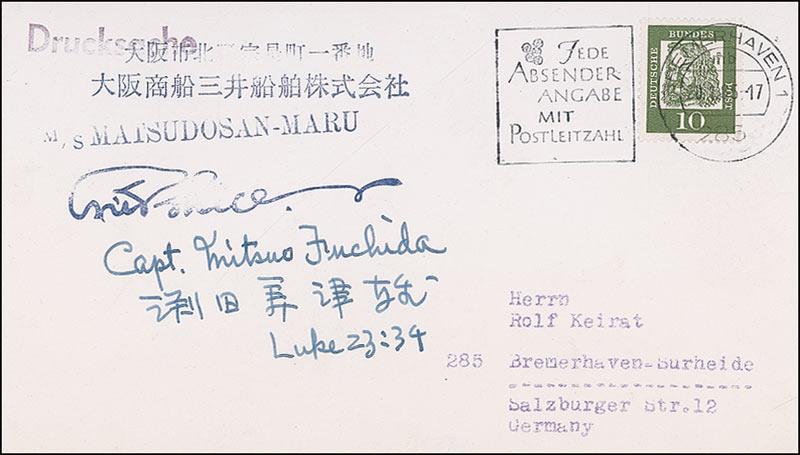 Drucksache
大阪市北区宗是町一番地
大阪商船三井船舶株式会社
M/S MATSUDOSAN-MARU
Capt. Mitsuo Fuchida
淵田美津雄
Luke 23:34
JEDE
ABSENDER-
ANGABE
MIT
POSTLEITZAHL
DEUTSCHE
BUNDES
POST
10
BREMERHAVEN 1
-17
285
Herrn
Rolf Keirat
285 Bremerhaven-Surheide
Salzburger Str.12
Germany